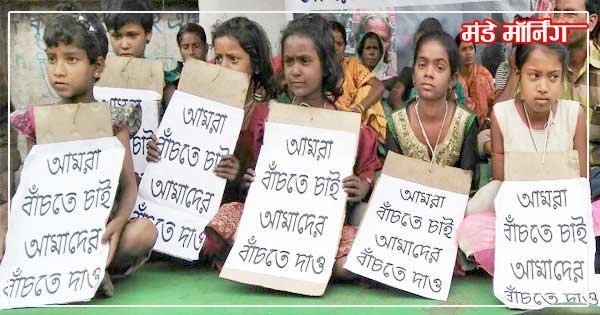 मंडे मॉर्निंग
আমরা
বাঁচতে চাই
আমাদের
বাঁচতে দাও
আমরা
বাঁচতে চাই
আমাদের
বাঁচতে দাও
আমরা
বাঁচতে চাই
আমাদের
বাঁচতে দাও
আমরা
বাঁচতে চাই
আমাদের
বাঁচতে দাও
আমরা
বাঁচতে চাই
আমাদের
বাঁচতে দাও